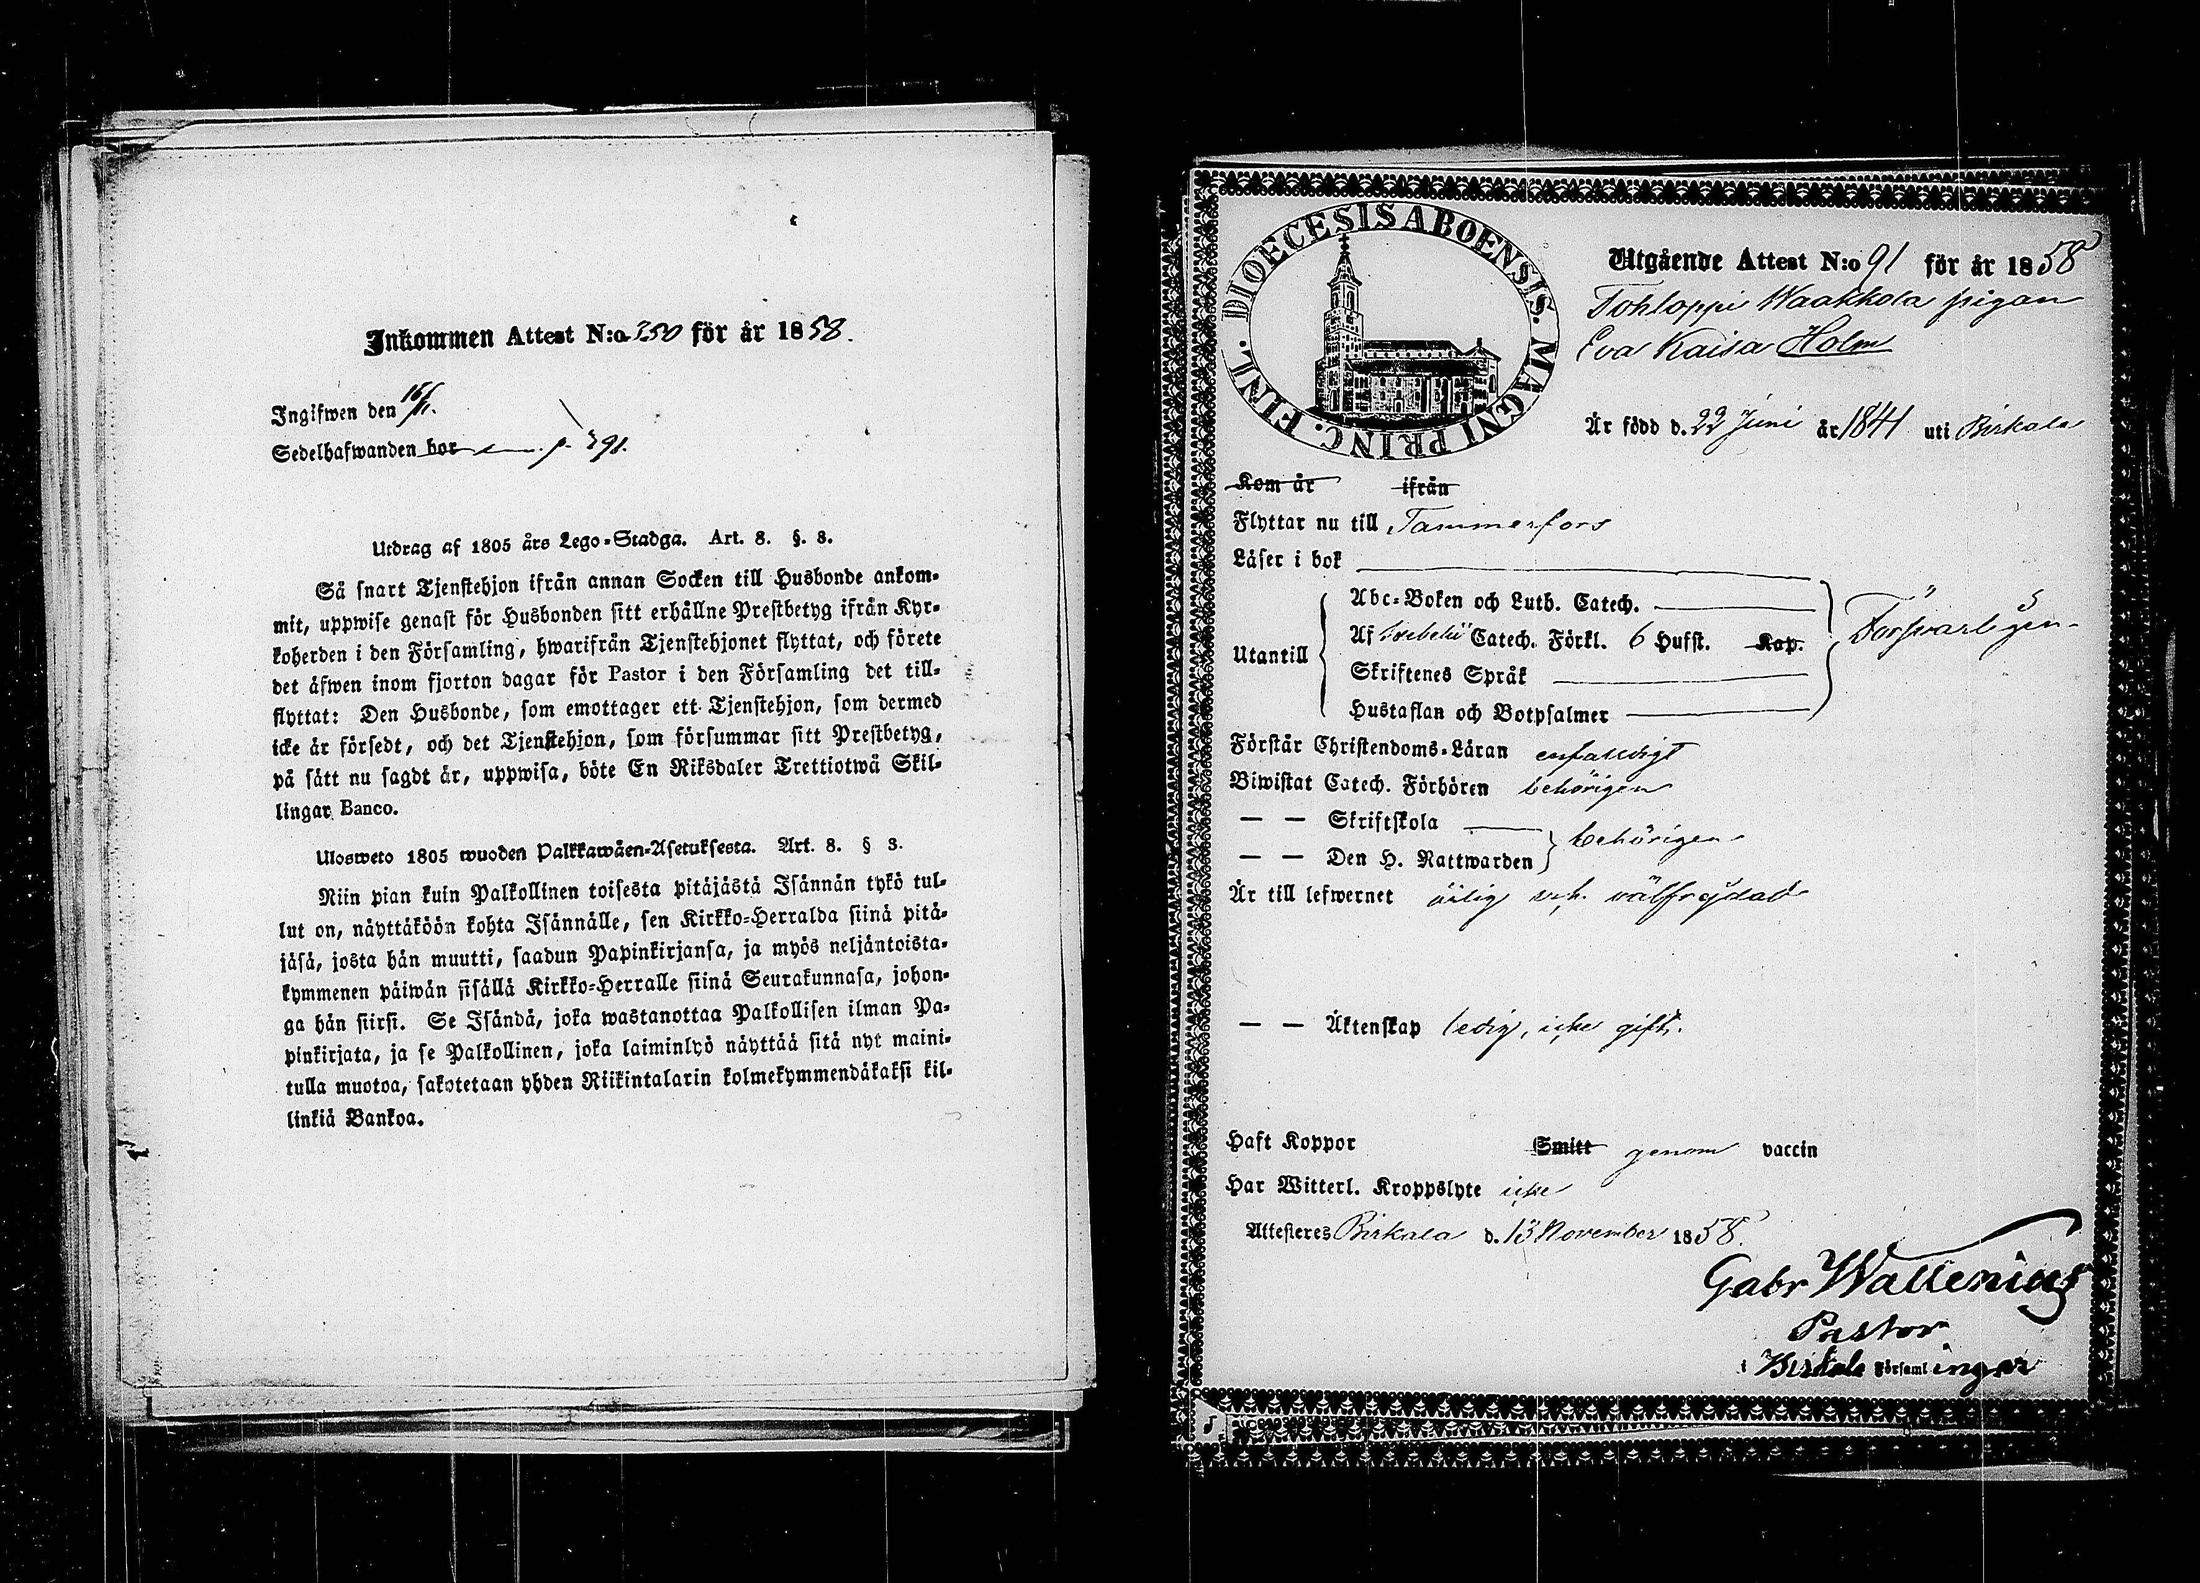 Inkommen Attest N:o 350 för år 1858.
Ingifwen den 16/11.
Sedelhafwanden bor p. 391.
Utdrag af 1805 års Lego-Stadga. Art. 8. §. 8.
Så snart Tjenstehjon ifrån annan Socken till Husbonde ankom-
mit, uppwise genast för Husbonden sitt erhållne Prestbetyg ifrån Kyr-
koherden i den Församling, hwarifrån Tjenstehjonet flyttat, och förete
det äfwen inom fjorton dagar för Pastor i den Församling det till-
flyttat: Den Husbonde, som emottager ett Tjenstehjon, som dermed
icke är försedt, och det Tjenstehjon, som försummar sitt Prestbetyg,
på sätt nu sagdt är, uppwisa, böte En Riksdaler Trettiotwå Skil-
lingar Banco.
Ulosweto 1805 wuoden Palkkawäen-Asetuksesta. Art. 8. § 8.
Niin pian kuin Palkollinen toisesta pitäjästä Isännän tykö tul-
lut on, näyttäköön kohta Isännälle, sen Kirkko-Herralda siinä pitä-
jäsä, josta hän muutti, saadun Papinkirjansa, ja myös neljäntoista-
kymmenen päiwän sisällä Kirkko-Herralle siinä Seurakunnasa, johon-
ga hän siirsi. Se Isändä, joka wastanottaa Palkollisen ilman Pa-
pinkirjata, ja se Palkollinen, joka laiminlyö näyttää sitä nyt maini-
tulla muotoa, sakotetaan yhden Riikintalarin kolmekymmendäkaksi kil-
linkiä Bankoa.
DIOECESIS ABOENSIS. MAGNI PRINC. FINL.
Utgående Attest N:o 91 för år 1858
Tohloppi Waakkola pigan
Eva Kaisa Holm
Är född d. 22 Juni år 1841 uti Birkala
Kom år ifrån
Flyttar nu till Tammerfors
Läser i bok
Utantill
Abc-Boken och Luth. Catech.
Af Svebelii Catech. Förkl. 6 Hufst. Kap.
Skriftenes Språk
Hustaflan och Botpsalmer
Försvarligen
Förstår Christendoms-Läran enfaldigt
Biwistat Catech. Förhören behörigen
— — Skriftskola
— — Den H. Nattwarden
behörigen
Är till lefwernet ärlig och wälfrejdad
— — Äktenskap ledig, icke gift.
Haft Koppor Smitt genom vaccin
Har Witterl. Kroppslyte icke
Attesteres Birkala d. 13 November 1858.
Gabr Wallenius
Pastor
i Birkala Församlingar